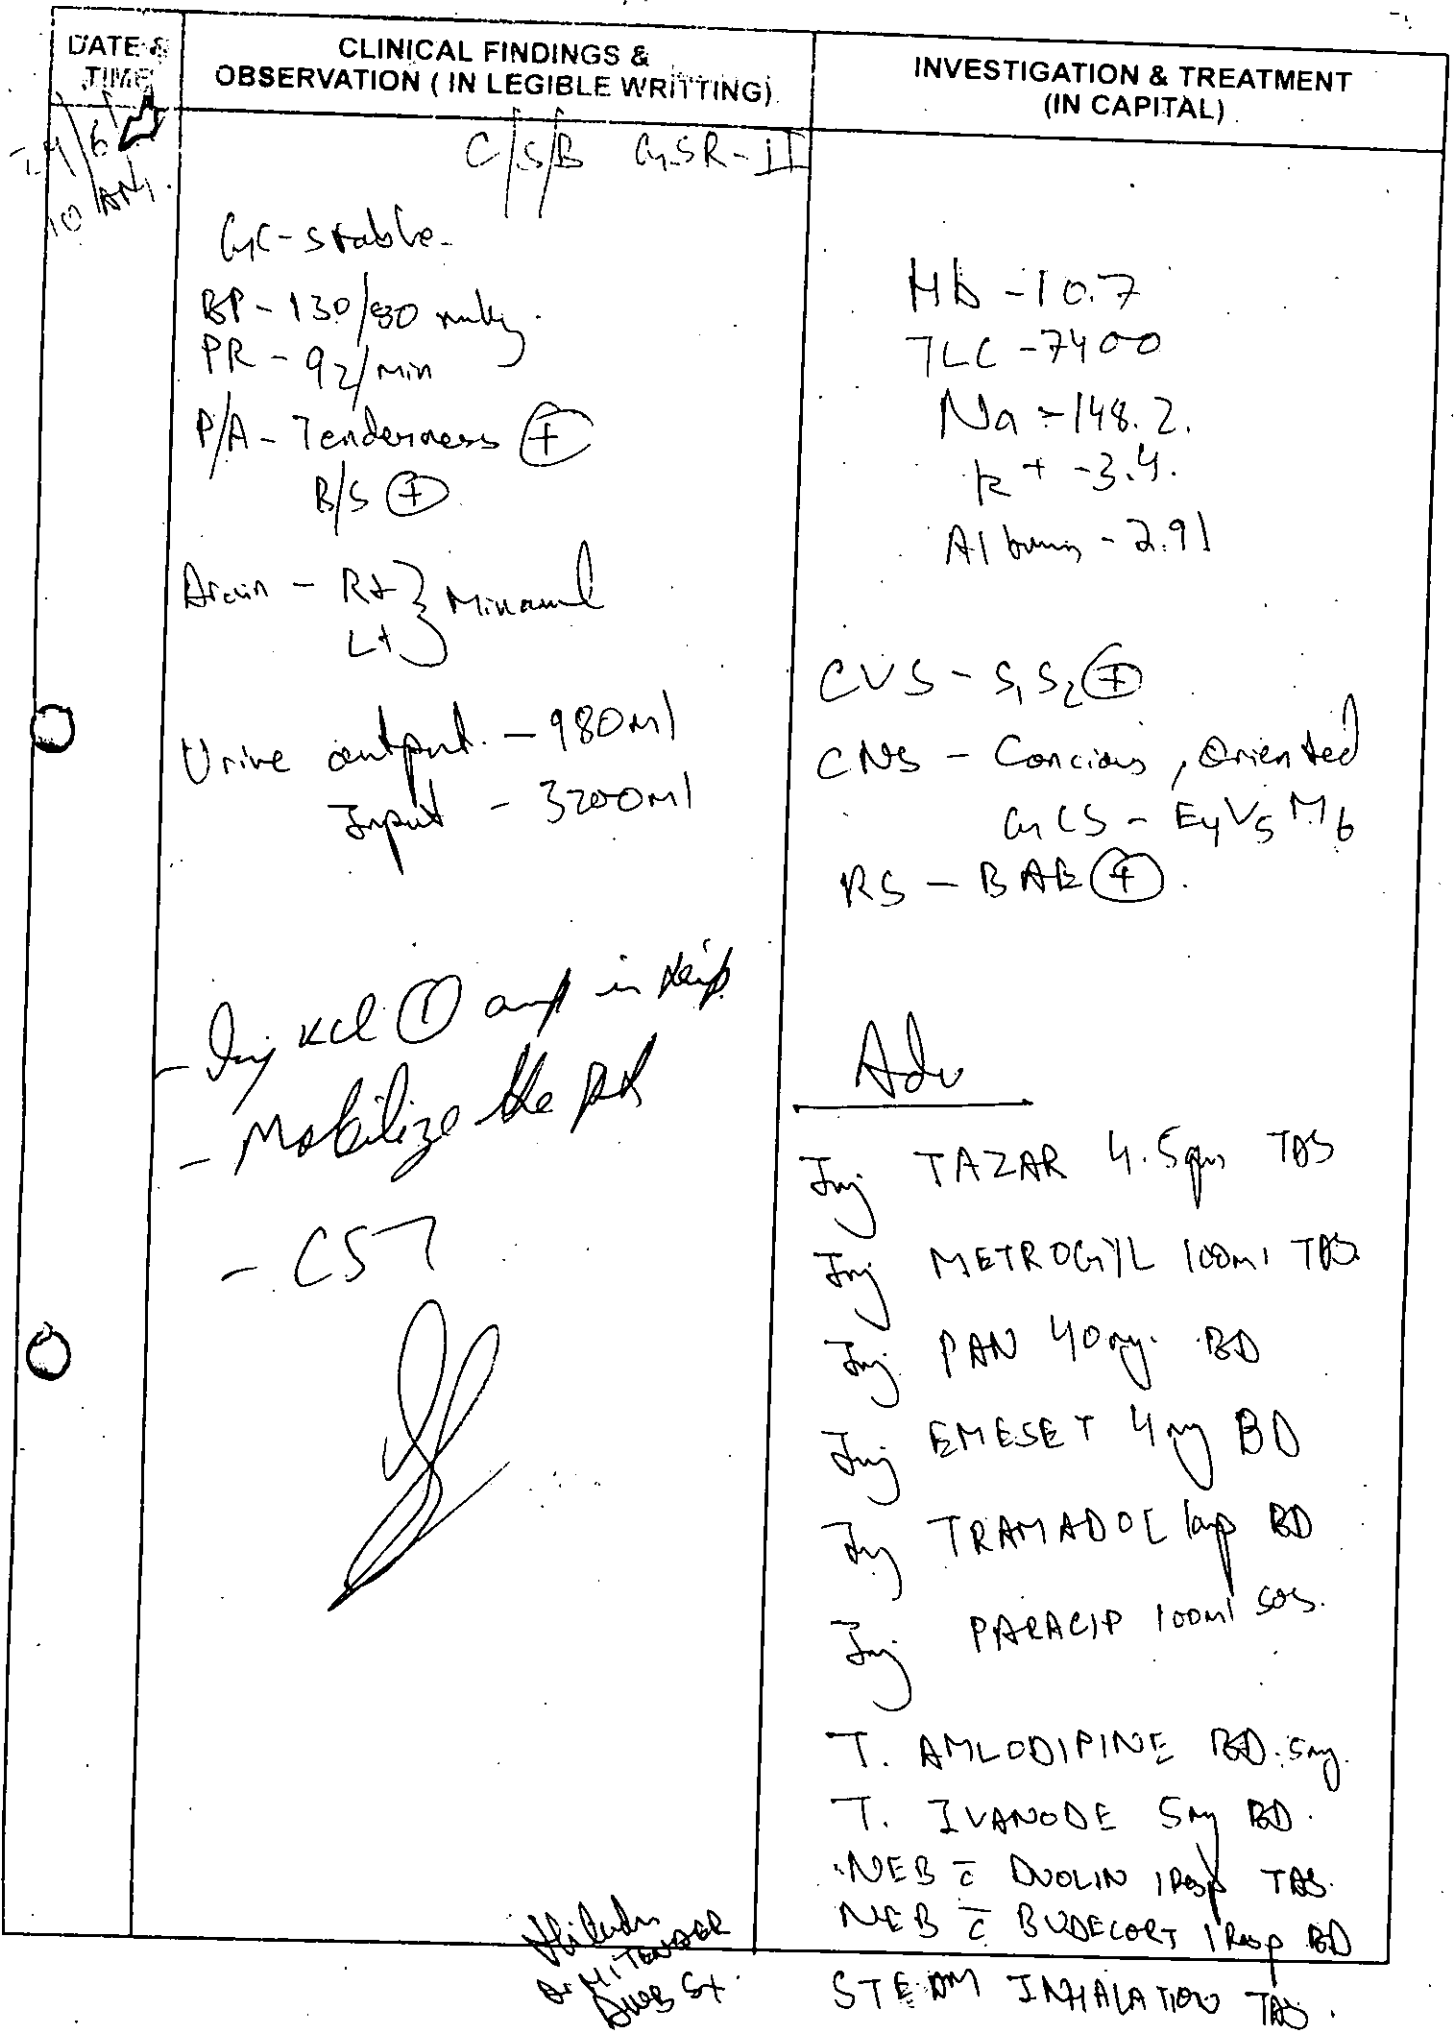 DATE & TIME
CLINICAL FINDINGS &
OBSERVATION ( IN LEGIBLE WRITTING)
INVESTIGATION & TREATMENT
(IN CAPITAL)
10 AM
C/S/B GSR-II
GC-stable
BP - 130/80 mmhg
PR - 92/min
P/A - Tenderness +
B/S +
Drain - Rt } Minamal
Lt
Urine output - 980ml
Input - 3200ml
- Inj KCl 1 amp in drip
- Mobilize the pt
- CST
Hb - 10.7
TLC - 7400
Na - 148.2.
K+ - 3.4.
Albumin - 2.91
CVS - S1 S2 +
CNS - Concious, Oriented
GCS - E4 V5 M6
RS - BAE +.
Adv
Inj TAZAR 4.5gm TDS
Inj METROGYL 100ml TDS
Inj PAN 40mg BD
Inj EMESET 4mg BD
Inj TRAMADOL 1amp BD
Inj PARACIP 100ml SOS.
T. AMLODIPINE BD. 5mg.
T. IVANODE 5mg BD.
NEB c̄ DUOLIN 1 Resp TDS.
NEB c̄ BUDECORT 1 Resp BD
STEAM INHALATION TDS.